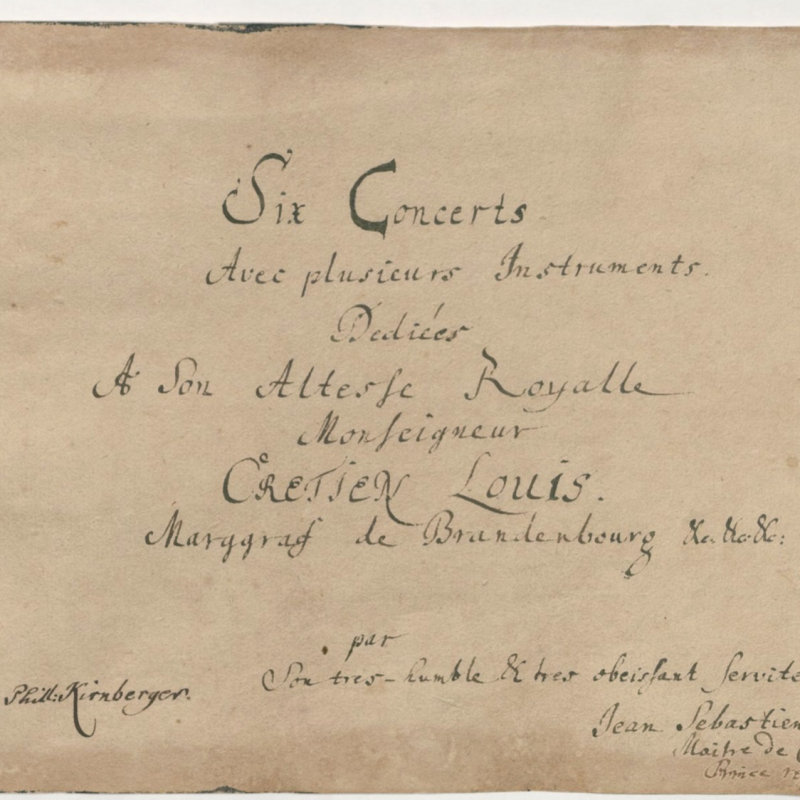 Six Concerts
Avec plusieurs Instruments.
Dediées
A Son Altesse Royalle
Monseigneur
CRETIEN LOUIS.
Marggraf de Brandenbourg &c. &c. &c:
par
Son tres-humble & tres obeissant servite
Phill: Kirnberger.
Jean Sebastien
Maitre de
Prince